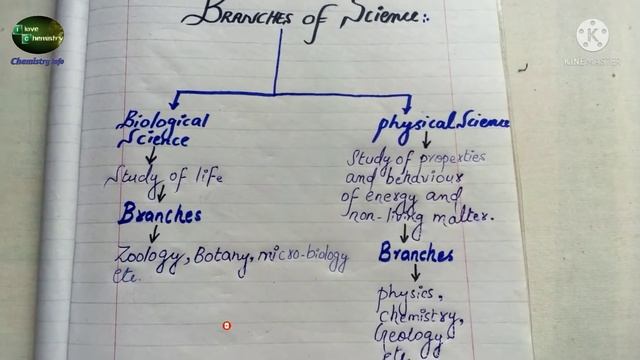 I love
Chemistry
Chemistry info
KINEMASTER
Branches of Science:.
Biological
Science
Study of life
Branches
Zoology, Botany, micro-biology
etc.
physical Science
Study of properties
and behaviour
of energy and
non-living matter.
Branches
physics,
chemistry,
Geology
etc.